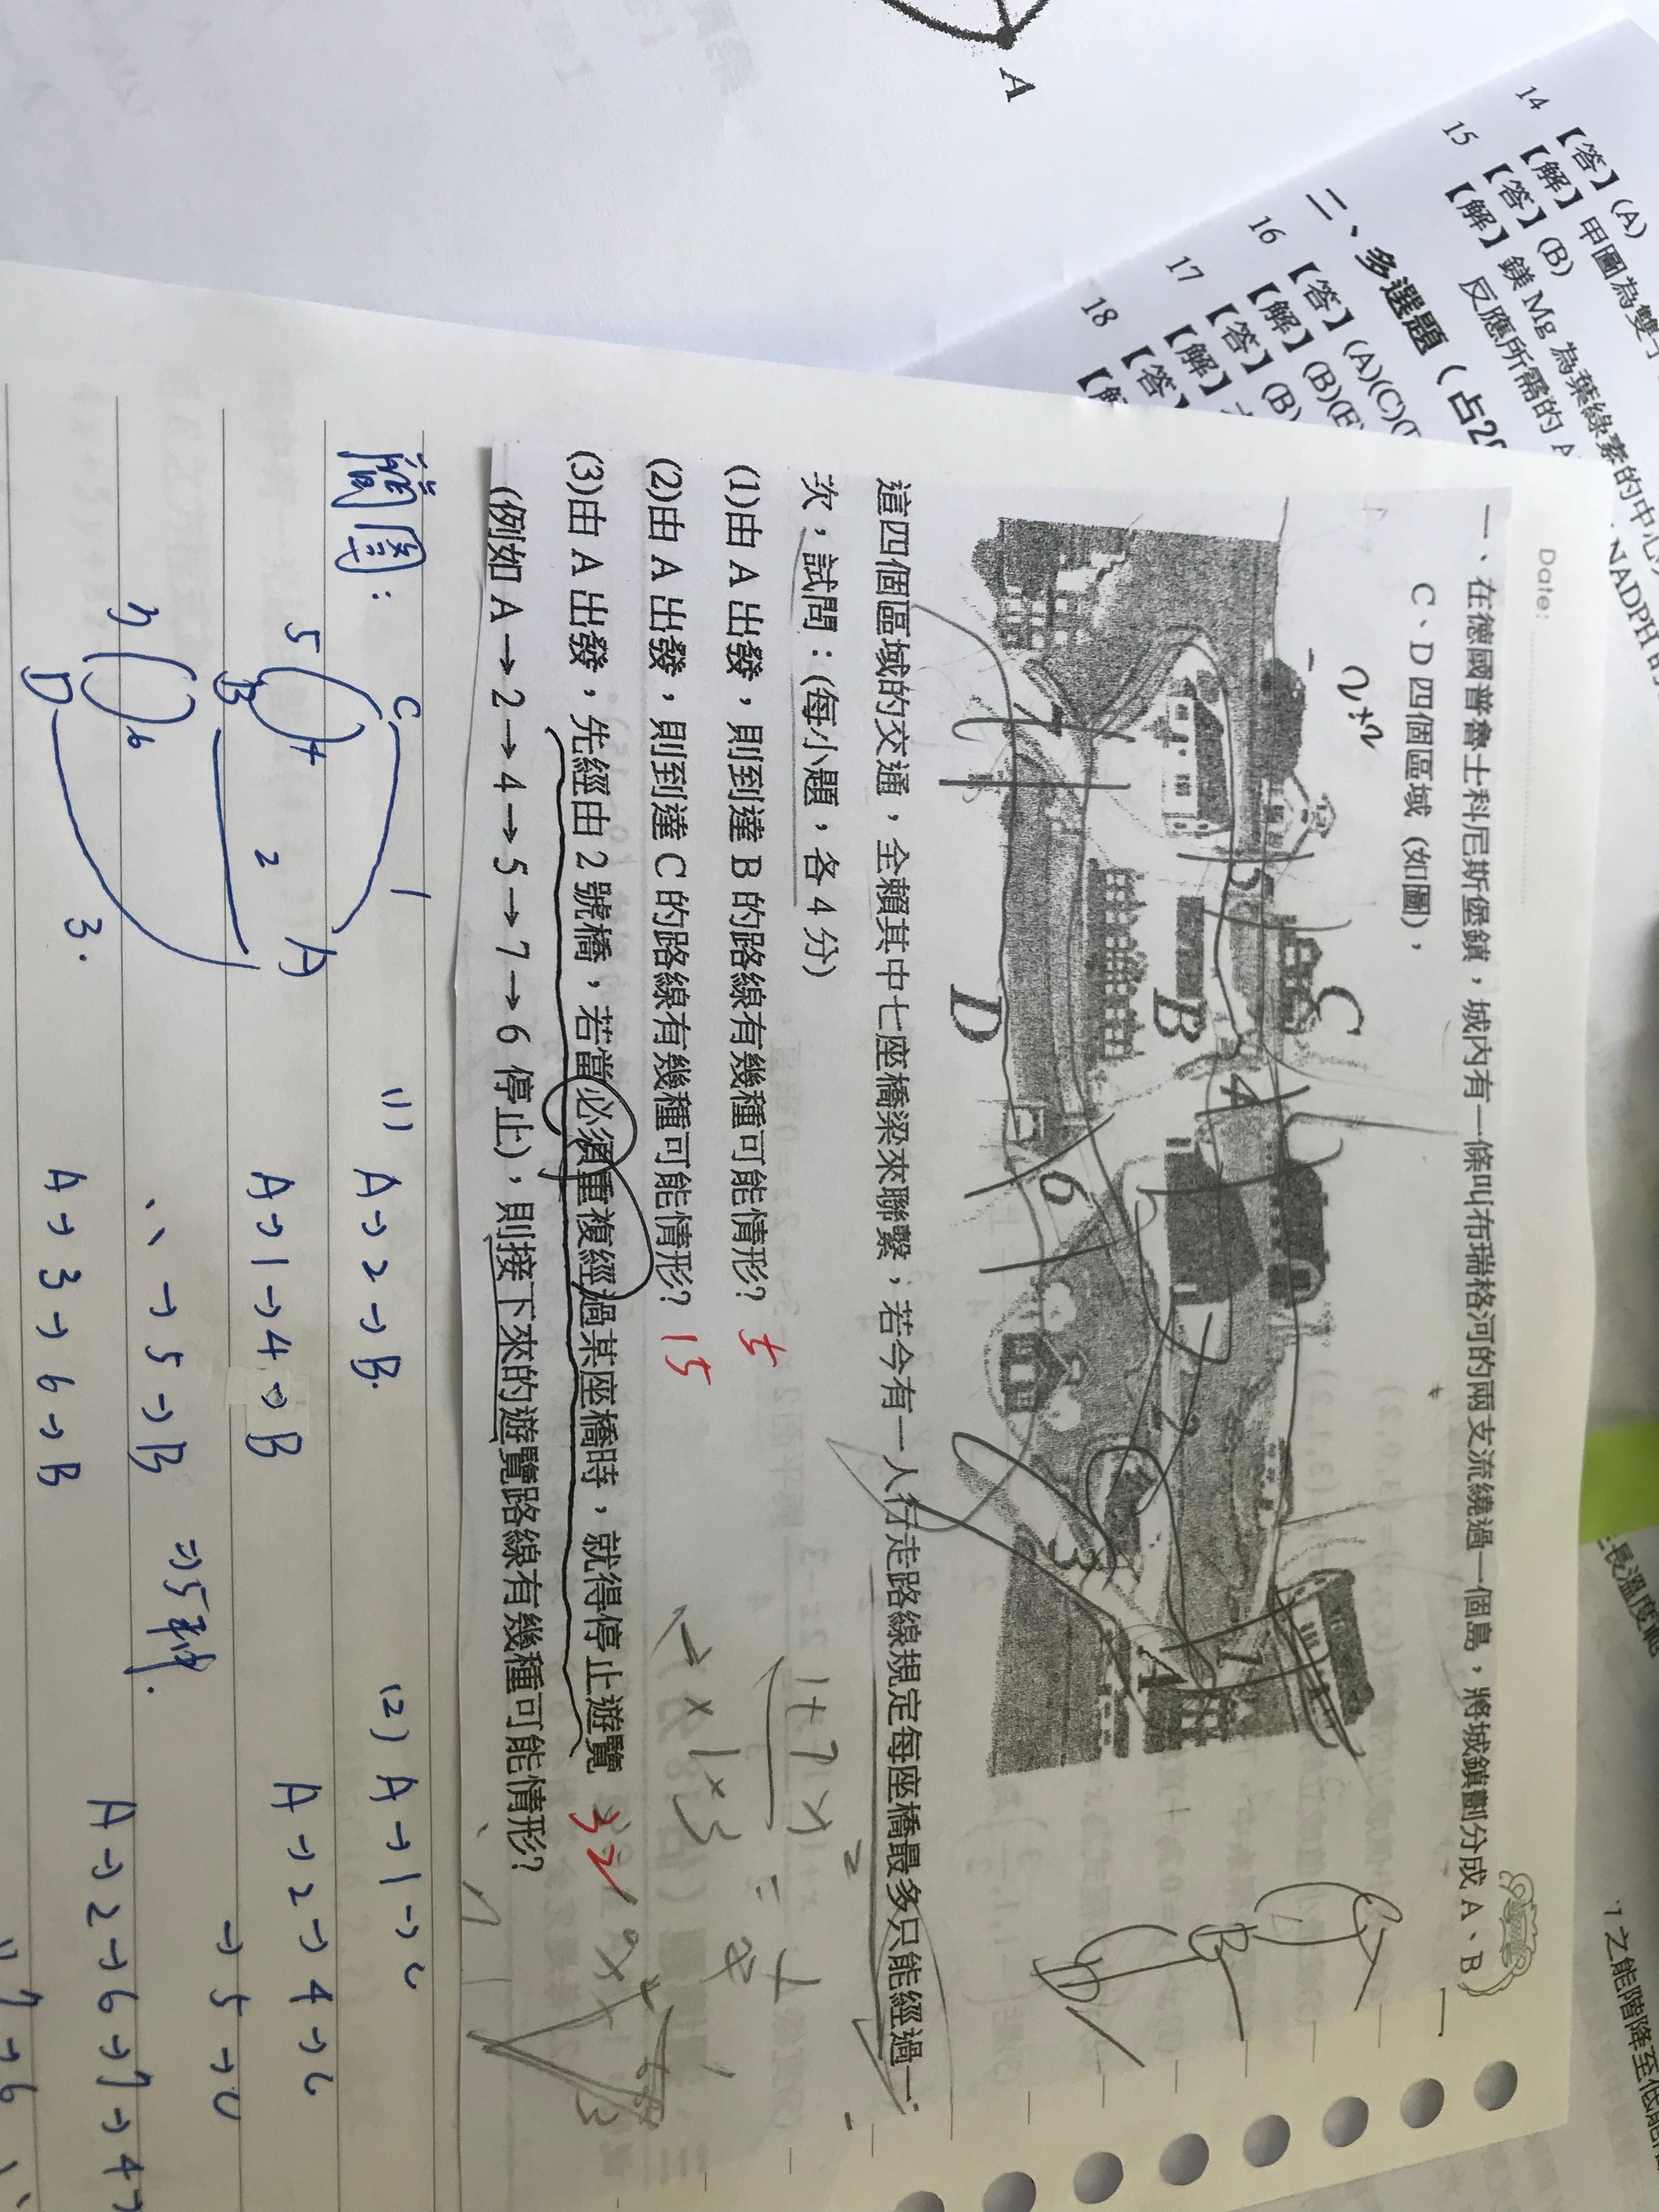 A
14 【答】(A)
【解】甲圖為雙
15 【答】(B)
【解】鎂 Mg 為葉綠素的中心
反應所需的 A
NADPH
二、多選題(占2
16 【答】(A)(C)(
【解】(B)(E
17 【答】(B)
【解】
18 【答
【解
長溫度範
之能階降至低能階
Date:
一、在德國普魯士科尼斯堡鎮，城內有一條叫布瑞格河的兩支流繞過一個島，將城鎮劃分成 A、B
C、D 四個區域 (如圖)，
2+2
C
A
B
D
1
C
5
4
B
2
1
A
7
6
3
D
這四個區域的交通，全賴其中七座橋梁來聯繫，若今有一人行走路線規定每座橋最多只能經過一
次，試問：(每小題，各 4 分)
(1)由 A 出發，則到達 B 的路線有幾種可能情形? 5
(2)由 A 出發，則到達 C 的路線有幾種可能情形? 15
(3)由 A 出發，先經由 2 號橋，若當必須重複經過某座橋時，就得停止遊覽 32
(例如 A→2→4→5→7→6 停止)，則接下來的遊覽路線有幾種可能情形?
簡圖：
C
1
5
4
A
B
2
7
6
D
3.
(1) A→2→B.
A→1→4→B
〃→5→B ⇒5種.
A→3→6→B
(2) A→1→C
A→2→4→C
→5→C
A→2→6→7→4→
〃7→6